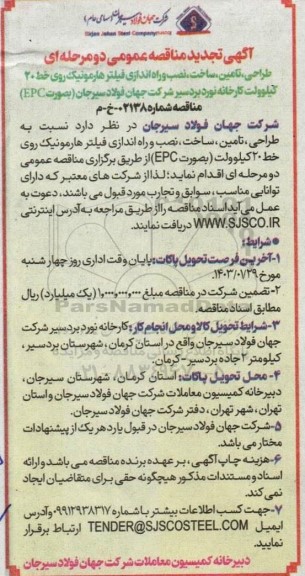 شرکت جهان فولاد سیرجان (سهامی عام)
Sirjan Jahan Steel Company
آگهی تجدید مناقصه عمومی دو مرحله ای
طراحی، تامین، ساخت، نصب و راه اندازی فیلتر هارمونیک روی خط ۲۰
کیلوولت کارخانه نورد بردسیر شرکت جهان فولاد سیرجان (بصورت EPC)
مناقصه شماره ۰۲۱۳۸-خ-م
شرکت جهان فولاد سیرجان در نظر دارد نسبت به
طراحی، تامین، ساخت، نصب و راه اندازی فیلتر هارمونیک روی
خط ۲۰ کیلوولت (بصورت EPC) از طریق برگزاری مناقصه عمومی
دو مرحله ای اقدام نماید؛ لذا از شرکت های معتبر که دارای
توانایی مناسب، سوابق و تجارب مورد قبول می باشند، دعوت به
عمل می آید اسناد مناقصه را از طریق مراجعه به آدرس اینترنتی
WWW.SJSCO.IR دریافت نمایند.
شرایط:
۱-آخرین فرصت تحویل پاکات: پایان وقت اداری روز چهار شنبه
مورخ ۱۴۰۳/۰۷/۲۹
۲-تضمین شرکت در مناقصه مبلغ ۱,۰۰۰,۰۰۰,۰۰۰ (یک میلیارد) ریال
مطابق اسناد مناقصه.
۳-شرایط تحویل کالا و محل انجام کار: کارخانه نورد بردسیر شرکت
جهان فولاد سیرجان واقع در استان کرمان، شهرستان بردسیر،
کیلومتر ۲ جاده بردسیر - کرمان.
۴- محل تحویل پاکات: استان کرمان، شهرستان سیرجان،
دبیرخانه کمیسیون معاملات شرکت جهان فولاد سیرجان و استان
تهران، شهر تهران، دفتر شرکت جهان فولاد سیرجان.
۵-شرکت جهان فولاد سیرجان در قبول یا رد هر یک از پیشنهادات
مختار می باشد.
۶-هزینه چاپ آگهی، بر عهده برنده مناقصه می باشد و ارائه
اسناد و مستندات مذکور هیچگونه حقی برای متقاضیان ایجاد
نمی کند.
۷-جهت کسب اطلاعات بیشتر با شماره ۰۹۹۱۲۹۳۸۳۱۷ و آدرس
ایمیل TENDER@SJSCOSTEEL.COM ارتباط برقرار
نمایید.
دبیرخانه کمیسیون معاملات شرکت جهان فولاد سیرجان